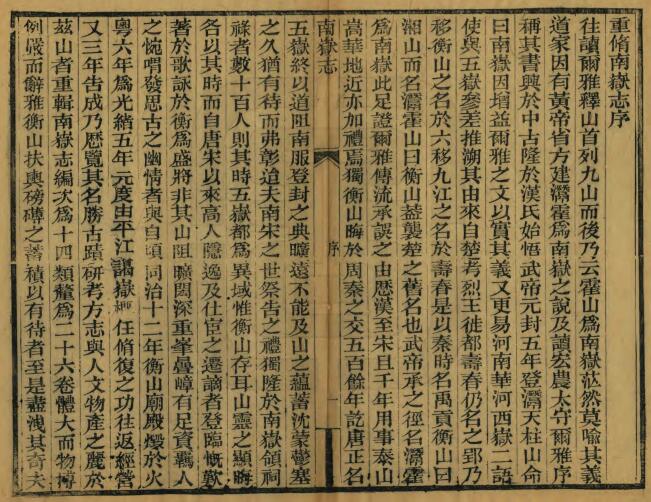 重脩南嶽志序
往讀爾雅釋山首列九山而後乃云霍山爲南嶽茫然莫喻其義
道家因有黃帝省方建灊霍爲南嶽之說及讀宏農太守爾雅序
稱其書興於中古隆於漢氏始悟武帝元封五年登灊天柱山命
曰南嶽因增益爾雅之文以實其義又更易河南華河西嶽二語
使與五嶽參差推溯其由來自楚考烈王徙都壽春仍名之郢乃
移衡山之名於六移九江之名於壽春是以秦時名禹貢衡山曰
湘山而名灊霍山曰衡山葢襲楚之舊名也武帝承之徑名灊霍
爲南嶽此足證爾雅傳流承誤之由歷漢至宋且千年用事泰山
嵩華地近亦加禮焉獨衡山晦於周秦之交五百餘年訖唐正名
南嶽志
序
一
五嶽終以道阻南服登封之典曠遠不能及山之蘊蓄沈蒙鬱塞
之久猶有待而弗彰逌夫南宋之世祭告之禮獨隆於南嶽領祠
祿者數十百人則其時五嶽都爲異域惟衡山存耳山靈之顯晦
各以其時而自唐宋以來高人隱逸及仕宦之遷謫者登臨慨歎
著於歌詠於衡爲盛將非其山阻曠閎深重峯疊嶂有足資羈人
之惋唱發思古之幽情者與自頃同治十二年衡山廟殿燬於火
粵六年爲光緒五年元度由平江謁嶽任脩復之功往返經營
又三年告成乃歷覽其名勝古蹟研考方志與人文物產之麗於
茲山者重輯南嶽志編次爲十四類釐爲二十六卷體大而物博
例嚴而辭雅衡山扶輿磅礴之蓄積以有待者至是盡洩其奇夫